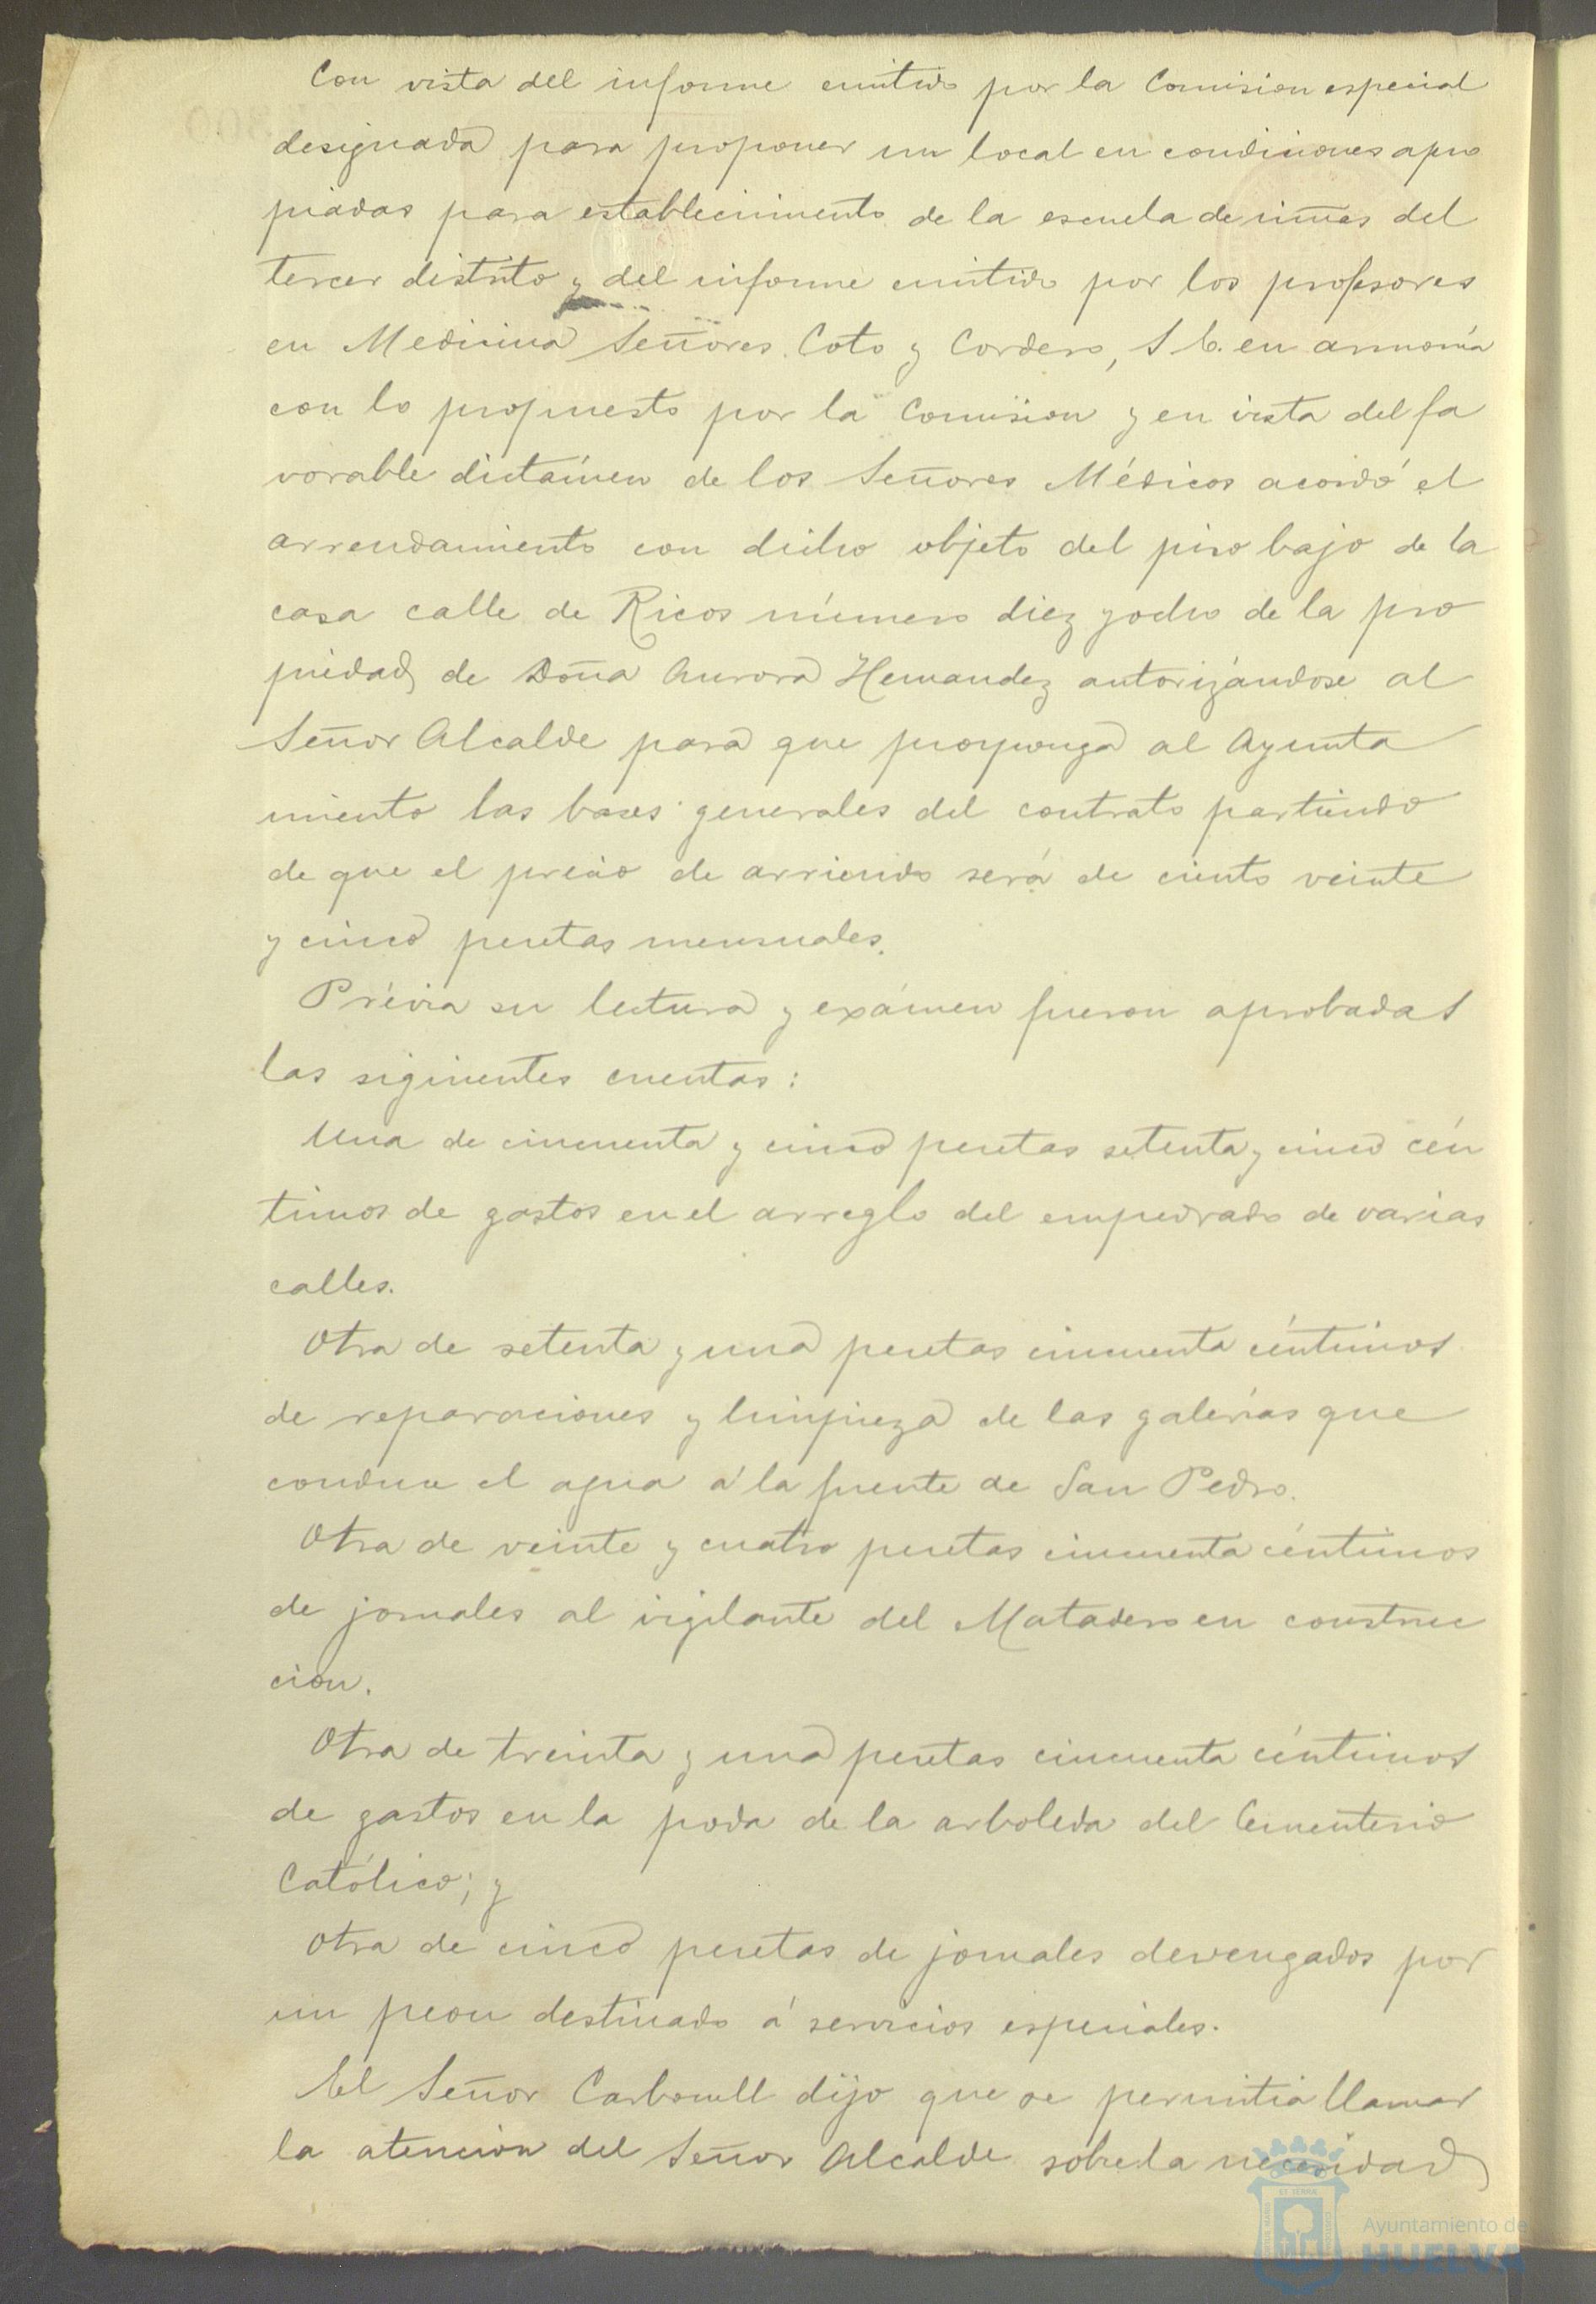 Con vista del informe emitido por la Comision especial
designada para proponer un local en condiciones apro
piadas para establecimiento de la escuela de niñas del
tercer distrito y del informe emitido por los profesores
en Medicina Señores Coto y Cordero, S. E. en armonía
con lo propuesto por la Comision y en vista del fa
vorable dictámen de los Señores Médicos acordó el
arrendamiento con dicho objeto del piso bajo de la
casa calle de Ricos número diez y ocho de la pro
piedad de Doña Aurora Hernandez autorizándose al
Señor Alcalde para que proponga al Ayunta
miento las bases generales del contrato partiendo
de que el precio de arriendo será de ciento veinte
y cinco pesetas mensuales.
Prévia su lectura y exámen fueron aprobadas
las siguientes cuentas:
Una de cincuenta y cinco pesetas setenta y cinco cén
timos de gastos en el arreglo del empedrado de varias
calles.
Otra de setenta y una pesetas cincuenta céntimos
de reparaciones y limpieza de las galerías que
conduce el agua á la fuente de San Pedro.
Otra de veinte y cuatro pesetas cincuenta céntimos
de jornales al vigilante del Matadero en construc
cion.
Otra de treinta y una pesetas cincuenta céntimos
de gastos en la poda de la arboleda del Cementerio
Católico; y
otra de cinco pesetas de jornales devengados por
un peon destinado á servicios especiales.
El Señor Carbonell dijo que se permitia llamar
la atencion del Señor Alcalde sobre la necesidad
Ayuntamiento de
HUELVA